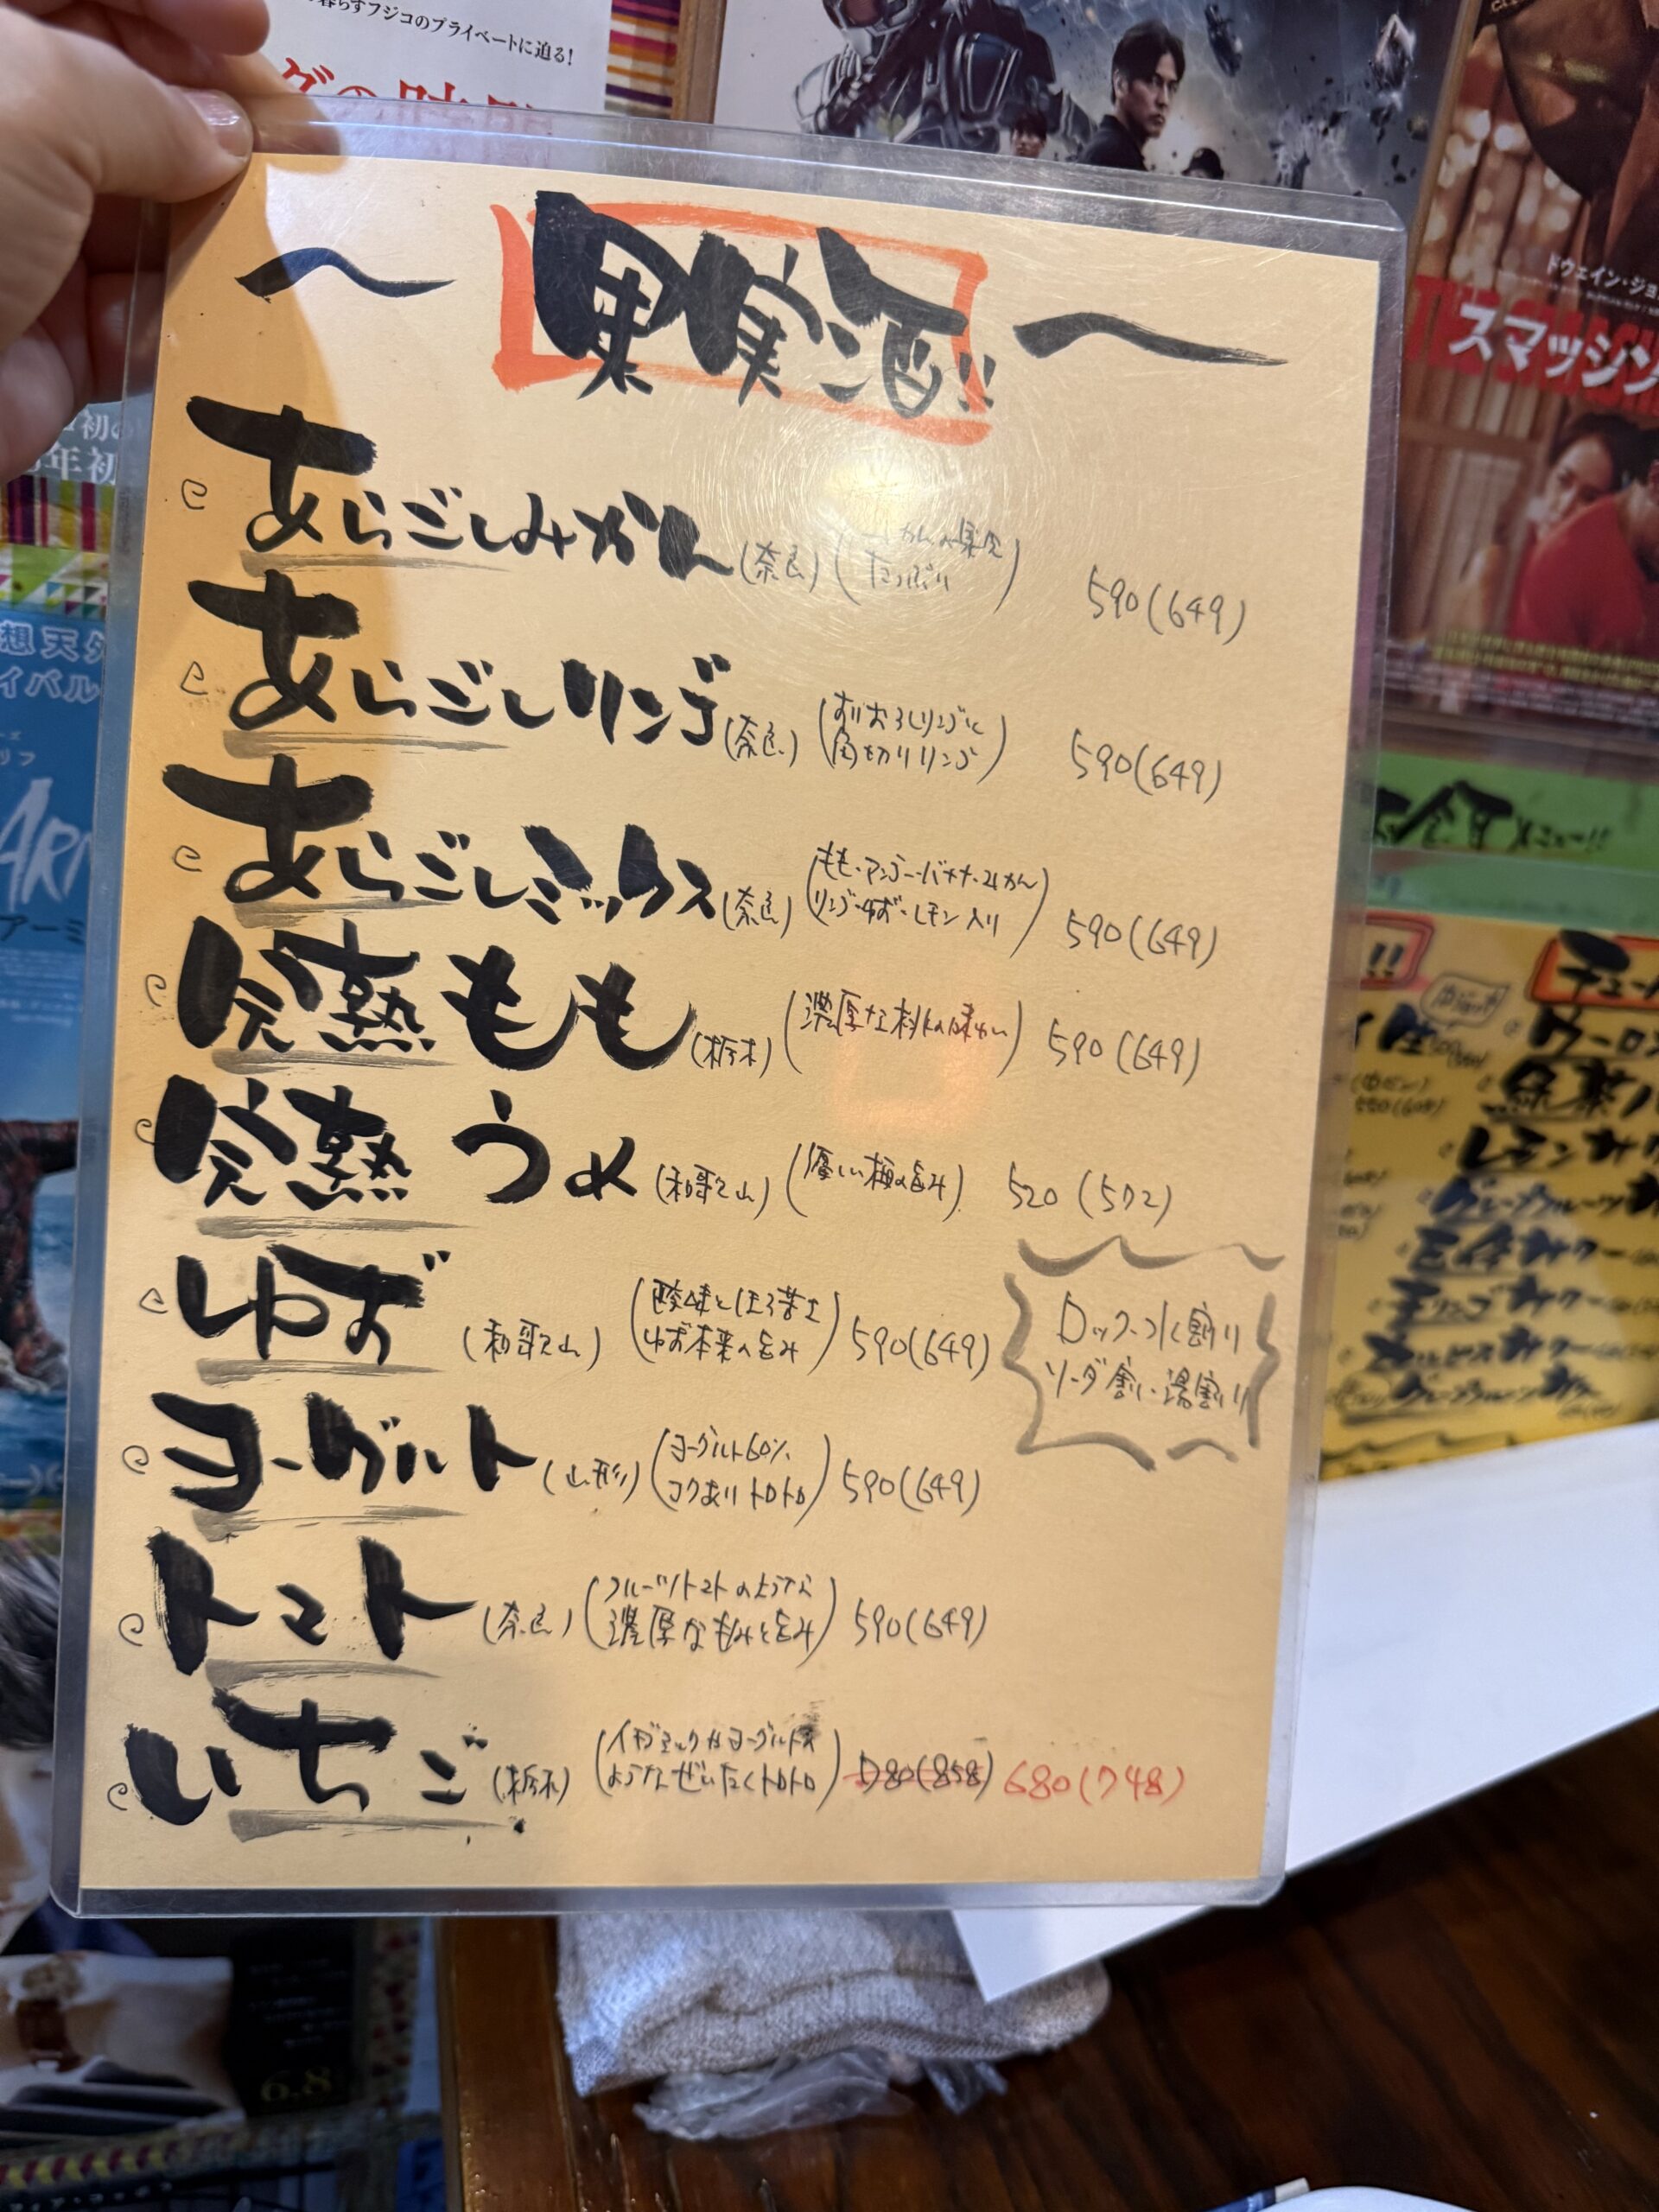 暮らすフジコのプライベートに迫る!
ドウェイン・ジョ
スマッシン
〜 果実酒!! 〜
あらごしみかん (奈良) (みかんの果肉
たっぷり) 590(649)
あらごしリンゴ (奈良) (すりおろしリンゴと
角切りリンゴ) 590(649)
あらごしミックス (奈良) (もも・アンズ・バナナ・みかん
リンゴ・ゆず・レモン入り) 590(649)
完熟もも (栃木) (濃厚な桃の味わい) 590(649)
完熟 うめ (和歌山) (優しい梅の旨み) 520(572)
ゆず (和歌山) (酸味とほろ苦さ
ゆず本来の旨み) 590(649)
ロック・水割り
ソーダ割り・湯割り
ヨーグルト (山形) (ヨーグルト60%
コクありトロトロ) 590(649)
トマト (奈良) (フルーツトマトのような
濃厚なもみと旨み) 590(649)
いちご (栃木) (イチゴミルクかヨーグルトの
ようなぜいたくトロトロ) 780(858) 680(748)
初の
年初
想天
イバル
リフ
ARM
アーミ
メニュー!!
レモンサワ
6.8